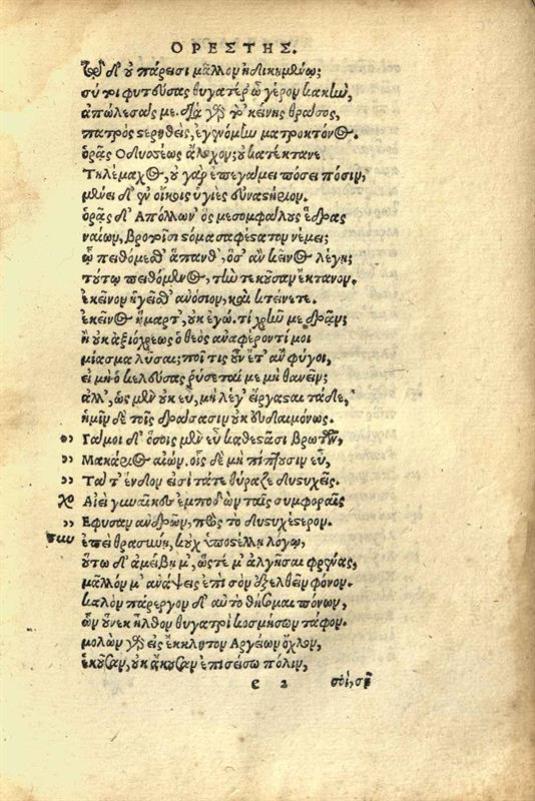 ΟΡΕΣΤΗΣ.
ᾧ δ' οὐ πάρεισι μᾶλλον ἠδικημένῳ;
σύ τοι φυτεύσας θυγατέρ' ὦ γέρον κακὴν,
ἀπώλεσάς με. διὰ γὰρ τὸ κείνης θράσος,
πατρὸς στερηθεὶς, ἐγενόμην ματροκτόνος.
ὁρᾷς Οδυσσέως ἄλοχον; οὐ κατέκτανε
Τηλέμαχος, οὐ γὰρ ἐπεγάμει πόσει πόσιν,
μένει δ' ἐν οἴκοις ὑγιὲς εὐναστήριον.
ὁρᾷς δ' Απόλλων' ὃς μεσομφάλους ἕδρας
ναίων, βροτοῖσι στόμα σαφέστατον νέμει;
ᾧ πειθόμεσθ' ἅπανθ', ὅσ' ἂν κεῖνος λέγῃ;
τούτῳ πειθόμενος, τὴν τεκοῦσαν ἔκτανον.
ἐκεῖνον ἡγεῖσθ' ἀνόσιον, καὶ κτείνετε.
ἐκεῖνος ἥμαρτ', οὐκ ἐγώ. τί χρῆν με δρᾷν;
ἢ οὐκ ἀξιόχρεως ὁ θεὸς ἀναφέροντί μοι
μίασμα λῦσαι; ποῖ τις οὖν ἔτ' ἂν φύγοι,
εἰ μὴ ὁ κελεύσας ῥύσεταί με μὴ θανεῖν;
ἀλλ', ὡς μὲν οὐκ εὖ, μὴ λέγ' εἴργασται τάδε,
ἡμῖν δὲ τοῖς δράσασιν οὐκ εὐδαιμόνως.
,, Γάμοι δ' ὅσοις μὲν εὖ καθεστᾶσι βροτῶν,
,, Μακάριος αἰών. οἷς δὲ μὴ πίπτουσιν εὖ,
,, Τά τ' ἔνδον εἰσὶ τάτε θύραζε δυστυχεῖς.
χο Αἰεὶ γυναῖκες ἐμποδὼν ταῖς συμφοραῖς
,, Εφυσαν ἀνδρῶν, πρὸς τὸ δυστυχέστερον.
τυν ἐπεὶ θρασύνῃ, κοὐχ ὑποστέλλῃ λόγῳ,
οὕτω δ' ἀμείβῃ μ', ὥστέ μ' ἀλγῆσαι φρένας,
μᾶλλόν μ' ἀνάψεις ἐπὶ σὸν ἐξελθεῖν φόνον.
καλὸν πάρεργον δ' αὐτὸ θήσομαι πόνων,
ὧν οὕνεκ' ἦλθον θυγατρὶ κοσμήσων τάφον.
μολὼν γὰρ εἰς ἔκκλητον Αργείων ὄχλον,
ἑκοῦσαν, οὐκ ἄκουσαν ἐπισείσω πόλιν,
e 2 σοὶ, σῇ